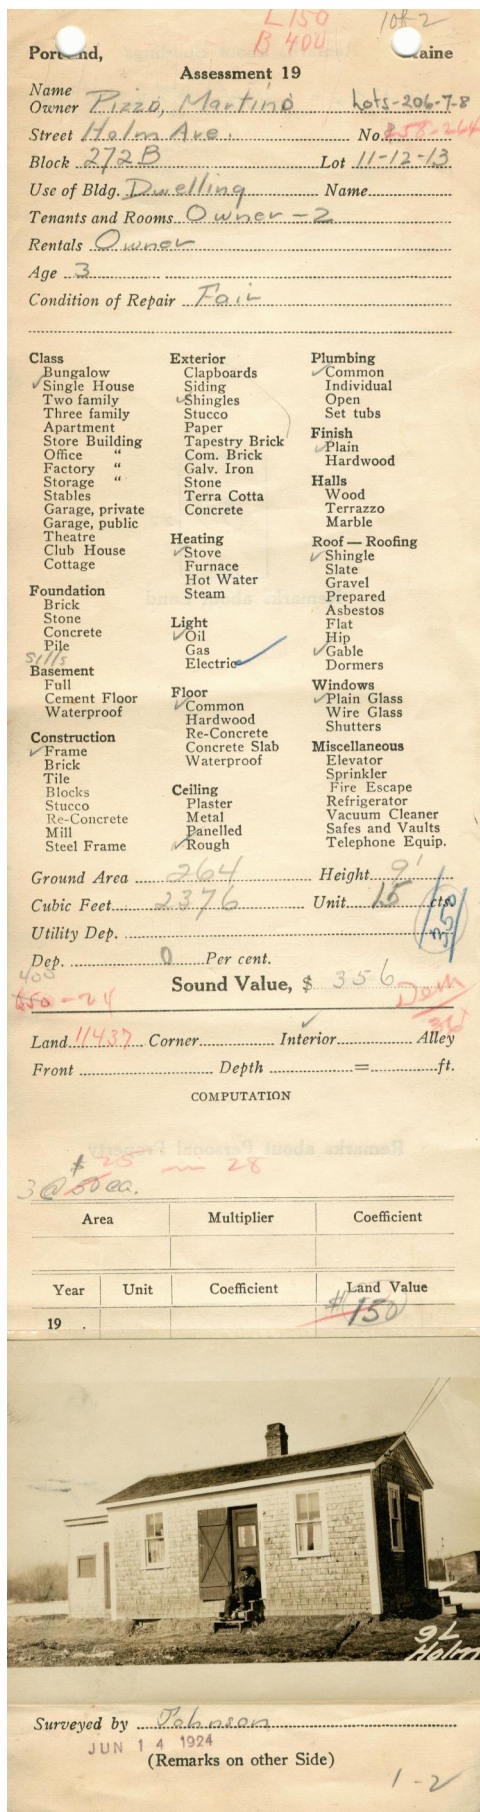 L 150 1 of 2
B 400
Portland, Maine
Assessment 19
Name
Owner Pizzo, Martino Lots-206-7-8
Street Holm Ave. No. 258-264
Block 272 B Lot 11-12-13
Use of Bldg. Dwelling Name
Tenants and Rooms Owner - 2
Rentals Owner
Age 3
Condition of Repair Fair
Class
Bungalow
✓ Single House
Two family
Three family
Apartment
Store Building
Office "
Factory "
Storage "
Stables
Garage, private
Garage, public
Theatre
Club House
Cottage
Foundation
Brick
Stone
Concrete
Pile
sills
Basement
Full
Cement Floor
Waterproof
Construction
✓ Frame
Brick
Tile
Blocks
Stucco
Re-Concrete
Mill
Steel Frame
Exterior
Clapboards
Siding
✓ Shingles
Stucco
Paper
Tapestry Brick
Com. Brick
Galv. Iron
Stone
Terra Cotta
Concrete
Heating
✓ Stove
Furnace
Hot Water
Steam
Light
✓ Oil
Gas
Electric ✓
Floor
✓ Common
Hardwood
Re-Concrete
Concrete Slab
Waterproof
Ceiling
Plaster
Metal
Panelled
✓ Rough
Plumbing
✓ Common
Individual
Open
Set tubs
Finish
✓ Plain
Hardwood
Halls
Wood
Terrazzo
Marble
Roof — Roofing
✓ Shingle
Slate
Gravel
Prepared
Asbestos
Flat
Hip
✓ Gable
Dormers
Windows
✓ Plain Glass
Wire Glass
Shutters
Miscellaneous
Elevator
Sprinkler
Fire Escape
Refrigerator
Vacuum Cleaner
Safes and Vaults
Telephone Equip.
Ground Area 264 Height 9'
Cubic Feet 2376 Unit 15 cts.
350
Utility Dep.
Dep. 0 Per cent.
400
Sound Value, $ 356
- 24
Dem
36
Land 11437 Corner Interior ✓ Alley
Front Depth = ft.
COMPUTATION
$ 25 - 28
3 @ 50 ea.
Area Multiplier Coefficient
Year Unit Coefficient Land Value
19 . $150
9L
Holm
Surveyed by Johnson
JUN 14 1924
(Remarks on other Side)
1-2